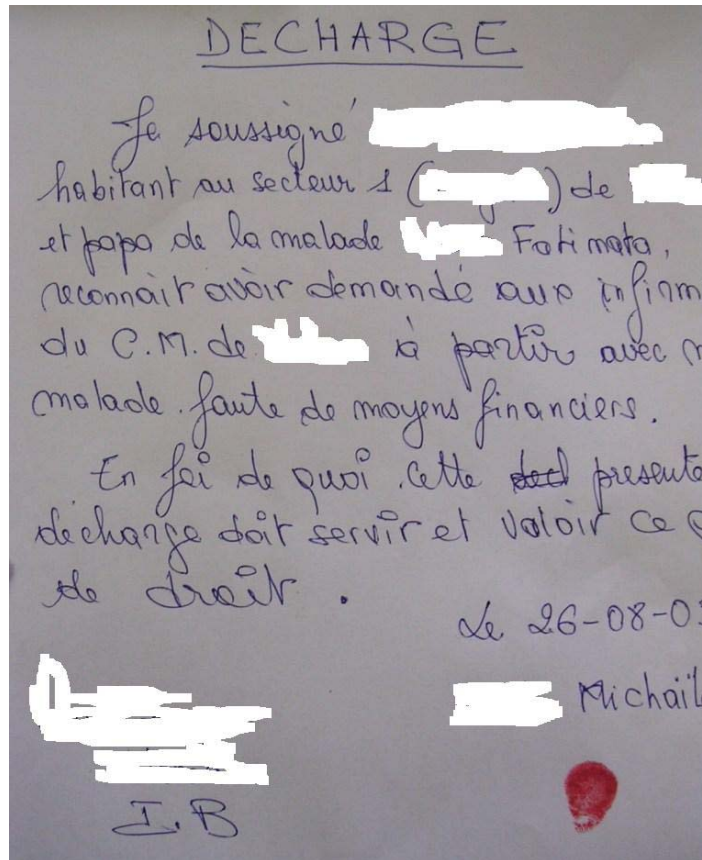 DECHARGE
Je soussigné
habitant au secteur 1 ( ) de
et papa de la malade Fatimata,
reconnait avoir demandé aux infirm
du C.M. de à partir avec m
malade faute de moyens financiers.
En foi de quoi cette presente
decharge doit servir et valoir ce
de droit.
Le 26-08-03
Michaïl
I.B